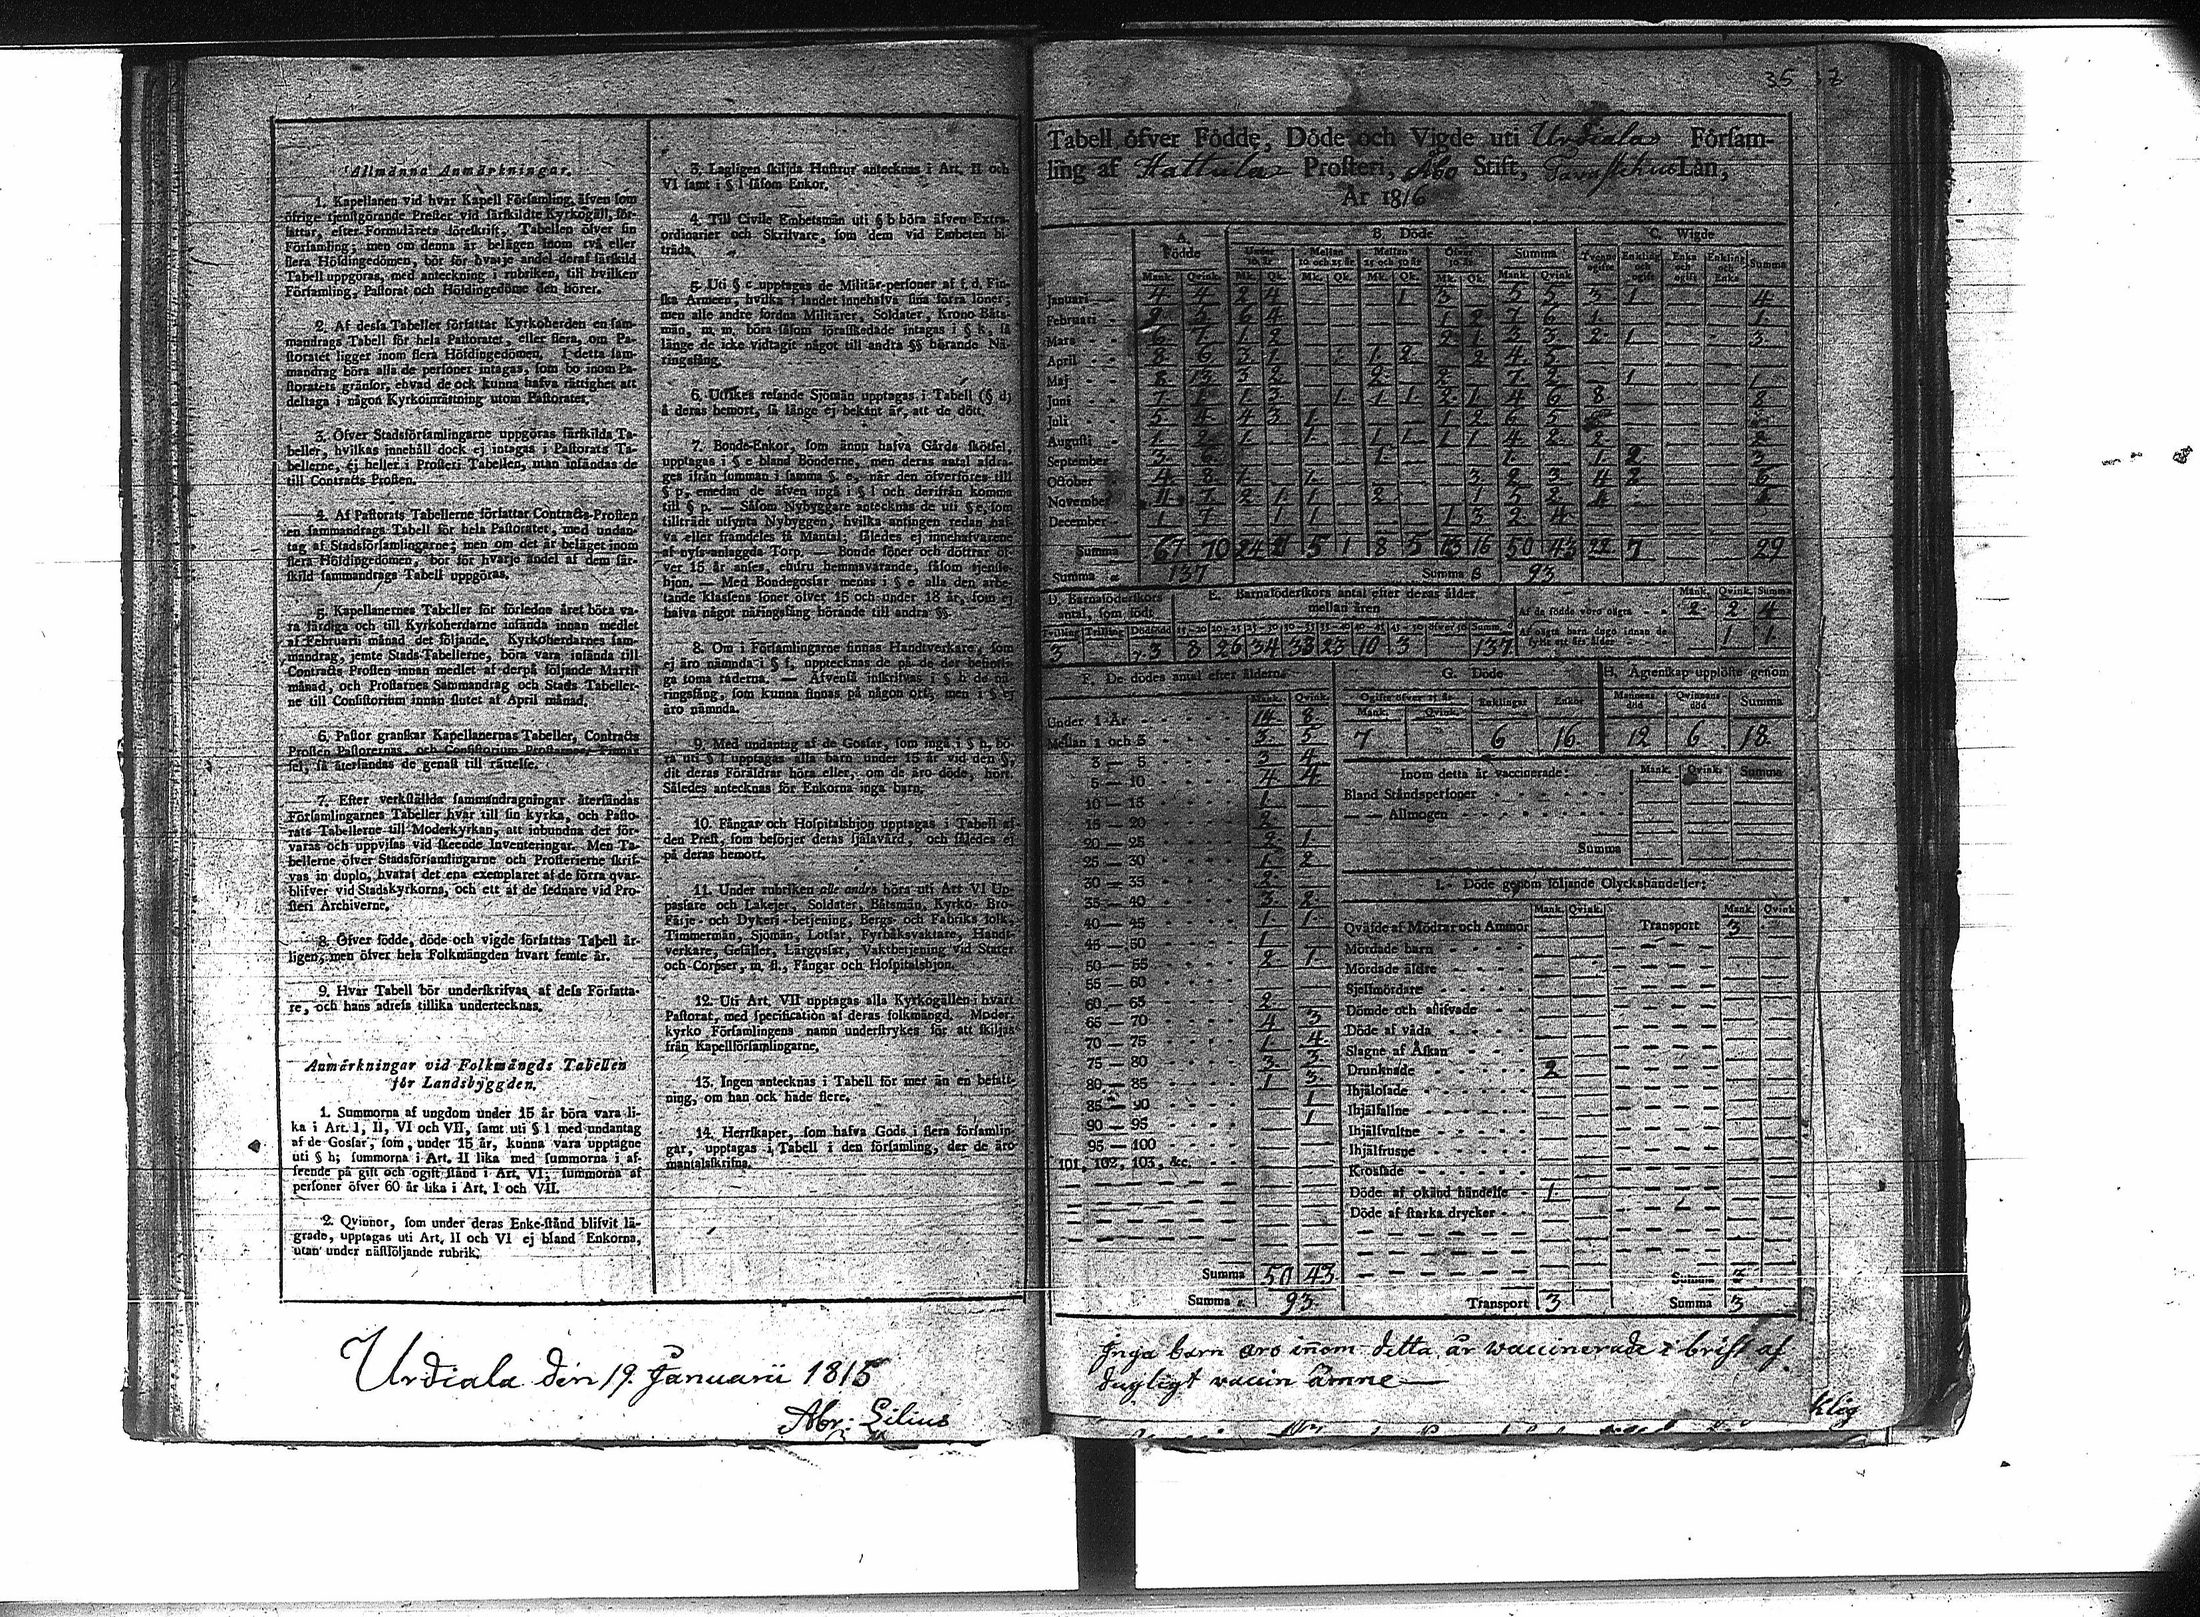 35
Allmänna Anmärkningar.
1. Kapellanen vid hvar Kapell Församling, äfven som
öfrige tjenstgörande Prester vid särskildte Kyrkogäll, för-
fattar, efter Formulärets föreskrift, Tabellen öfver sin
Församling; men om denna är belägen inom två eller
flera Höfdingedömen, bör för hvarje andel deraf särskild
Tabell uppgöras, med anteckning i rubriken, till hvilken
Församling, Pastorat och Höfdingedöme den hörer.
2. Af dessa Tabeller författar Kyrkoherden en sam-
mandrags Tabell för hela Pastoratet, eller flera, om Pa-
storatet ligger inom flera Höfdingedömen. I detta sam-
mandrag böra alla de personer intagas, som bo inom Pa-
storatets gränsor, ehvad de ock kunna hafva rättighet att
deltaga i någon Kyrkoinrättning utom Pastoratet.
3. Öfver Stadsförsamlingarne uppgöras särskilda Ta-
beller, hvilkas innehåll dock ej intages i Pastorats Ta-
bellerne, ej heller i Prosteri Tabellen, utan insändas de
till Contracts Prosten.
4. Af Pastorats Tabellerne författar Contracts-Prosten
en sammandrags Tabell för hela Pastoratet, med undan-
tag af Stadsförsamlingarne; men om det är beläget inom
flera Höfdingedömen, bör för hvarje andel af dem sär-
skild sammandrags Tabell uppgöras.
5. Kapellanernes Tabeller för förledne året böra va-
ra färdiga och till Kyrkoherdarne insända innan medlet
af Februarii månad det följande. Kyrkoherdarnes sam-
mandrag, jemte Stads-Tabellerne, böra vara insända till
Contracts Prosten innan medlet af derpå följande Martii
månad, och Prostarnes Sammandrag och Stads Tabeller-
ne till Consistorium innan slutet af April månad.
6. Pastor granskar Kapellanernas Tabeller, Contracts
Prosten Pastorernas, och Consistorium Prostarnes. Finnas
fel, så återsändas de genast till rättelse.
7. Efter verkställda sammandragningar återsändas
Församlingarnes Tabeller hvar till sin kyrka, och Pasto-
rats Tabellerne till Moderkyrkan, att inbundna der för-
varas och uppvisas vid skeende Inventeringar. Men Ta-
bellerne öfver Stadsförsamlingarne och Prosterierne skrif-
vas in duplo, hvaraf det ena exemplaret af de förra qvar-
blifver vid Stadskyrkorna, och ett af de sednare vid Pro-
steri Archiverne.
8. Öfver födde, döde och vigde författas Tabell år-
ligen; men öfver hela Folkmängden hvart femte år.
9. Hvar Tabell bör underskrifvas af dess Författa-
re, och hans adress tillika undertecknas.
Anmärkningar vid Folkmängds Tabellen
för Landsbyggden.
1. Summorna af ungdom under 15 år böra vara li-
ka i Art. I, II, VI och VII, samt uti § l med undantag
af de Gossar, som, under 15 år, kunna vara upptagne
uti § h; summorna i Art. II lika med summorna i af-
seende på gift och ogift stånd i Art. VI; summorna af
personer öfver 60 år lika i Art. I och VII.
2. Qvinnor, som under deras Enke-stånd blifvit lä-
grade, upptagas uti Art. II och VI ej bland Enkorna,
utan under nästföljande rubrik.
3. Lagligen skiljda Hustrur antecknas i Art. II och
VI samt i § l såsom Enkor.
4. Till Civile Embetsmän uti § b böra äfven Extra-
ordinarier och Skrifvare, som dem vid Embeten bi-
träda.
5. Uti § c upptagas de Militär-personer af f. d. Fin-
ska Armeen, hvilka i landet innehafva sina förra löner;
men alle andre fordna Militärer, Soldater, Krono Båts-
män, m. m. böra såsom förafskedade intagas i § k, så
länge de icke vidtagit något till andra §§ hörande Nä-
ringsfång.
6. Utrikes resande Sjömän upptagas i Tabell (§ d)
å deras hemort, så länge ej bekant är, att de dött.
7. Bonde-Enkor, som ännu hafva Gårds skötsel,
upptagas i § e bland Bönderne, men deras antal afdra-
ges ifrån summan i samma § e, när den öfverföres till
§ p, emedan de äfven ingå i § l och derifrån komma
till § p. — Såsom Nybyggare antecknas de uti § e, som
tillträdt utsynta Nybyggen, hvilka antingen redan haf-
va eller framdeles få Mantal; således ej innehafvarene
af nyss anlaggda Torp. — Bonde söner och döttrar öf-
ver 15 år anses, ehuru hemmavarande, såsom tjenste-
hjon. — Med Bondegossar menas i § e alla den arbe-
tande klassens söner öfver 15 och under 18 år, som ej
hafva något näringsfång hörande till andra §§.
8. Om i Församlingarne finnas Handtverkare, som
ej äro nämnda i § f, upptecknas de på de der befintli-
ga toma raderna. — Äfvenså inskrifvas i § h de nä-
ringsfång, som kunna finnas på någon ort, men i § ej
äro nämnda.
9. Med undantag af de Gossar, som ingå i § h, bö-
ra uti § l upptagas alla barn under 15 år vid den §,
dit deras Föräldrar höra eller, om de äro döde, hört.
Således antecknas för Enkorna inga barn.
10. Fångar och Hospitalshjon upptagas i Tabell af
den Prest, som besörjer deras själavård, och således ej
på deras hemort.
11. Under rubriken alle andre böra uti Art VI Up-
passare och Lakejer, Soldater, Båtsmän, Kyrko- Bro-
Färje- och Dykeri-betjening, Bergs- och Fabriks folk,
Timmermän, Sjömän, Lotsar, Fyrbåksvaktare, Handt-
verkare, Gesäller, Lärgossar, Vaktbetjening vid Stater
och Corpser, m. fl., Fångar och Hospitalshjon.
12. Uti Art. VII upptagas alla Kyrkogällen i hvart
Pastorat, med specification af deras folkmängd. Moder-
kyrko Församlingens namn understrykes för att skiljas
från Kapellförsamlingarne.
13. Ingen antecknas i Tabell för mer än en befatt-
ning, om han ock hade flere.
14. Herrskaper, som hafva Gods i flera församlin-
gar, upptagas i Tabell i den församling, der de äro
mantalsskrifna.
Urdiala den 19. Januarii 1815
Abr: Lilius
Tabell öfver Födde, Döde och Vigde uti Urdiala Församling
af Hattula Prosteri, Åbo Stift, Tavastehus Län,
År 1816
A. Födde B. Döde C. Wigde
Mank. Qvink.
Januari 4 4 2 4 1 3 5 5 3 1 4
Februari 6 4 1 2 7 6 1 1
Mars 6 1 1 2 2 1 3 3 2 1 3
April 8 6 3 1 1 2 2 4 5
Maj 8 13 3 2 2 2 7 2 1 1
Juni 7 1 1 3 1 1 1 2 1 4 6 8 8
Juli 5 4 4 3 1 1 2 6 5
Augusti 1 2 1 1 1 1 1 1 4 2 2 2
September 3 6 1 1 1 2 3
October 4 8 1 1 3 2 3 4 2 6
November 11 7 2 1 1 2 1 5 2
December 1 7 1 1 1 3 2 4
Summa 67 70 24 21 5 1 8 5 13 16 50 43 22 7 29
Summa 137 Summa 93
D. Barnaföderskors antal, som födt
Tvilling Trilling Dödfödde
3 3
E. Barnaföderskors antal efter deras ålder mellan åren
8 26 34 33 23 10 3 137
Af de födde voro oägta 2 2 4
Af oägta barn dogo innan de fyllt ett års ålder 1 1
F. De dödes antal efter åldern
Mank. Qvink.
Under 1 År 14 8
Mellan 1 och 3 3 5
3 — 5 3 4
5 — 10 4 4
10 — 15 1
15 — 20 2
20 — 25 2 1
25 — 30 1 2
30 — 35 2
35 — 40 3 2
40 — 45 1 1
45 — 50 1
50 — 55 2 1
55 — 60
60 — 65 2
65 — 70 4 3
70 — 75 1 4
75 — 80 3 3
80 — 85 1 3
85 — 90 1
90 — 95 1
95 — 100
101, 102, 103, &c.
Summa 50 43
Summa 93
G. Döde
Ogifte öfver 21 år Enklingar Enkor
Mank. Qvink.
7 6 16
H. Ägtenskap upplöste genom
Mannens död Qvinnans död Summa
12 6 18
Inom detta år vaccinerade: Mank. Qvink. Summa
Bland Ståndspersoner
— — Allmogen
Summa
I. Döde genom följande Olyckshändelser:
Mank. Qvink. Mank. Qvink.
Qväfde af Mödrar och Ammor Transport 3
Mördade barn
Mördade äldre
Sjelfmördare
Dömde och aflifvade
Döde af våda
Slagne af Åskan
Drunknade 2
Ihjälosade
Ihjälfallne
Ihjälsvultne
Ihjälfrusne
Krossade
Döde af okänd händelse 1
Döde af starka drycker
Summa 3
Transport 3 Summa 3
Inga barn äro inom detta år waccinerade i brist af
dugligt vaccin ämne
klig